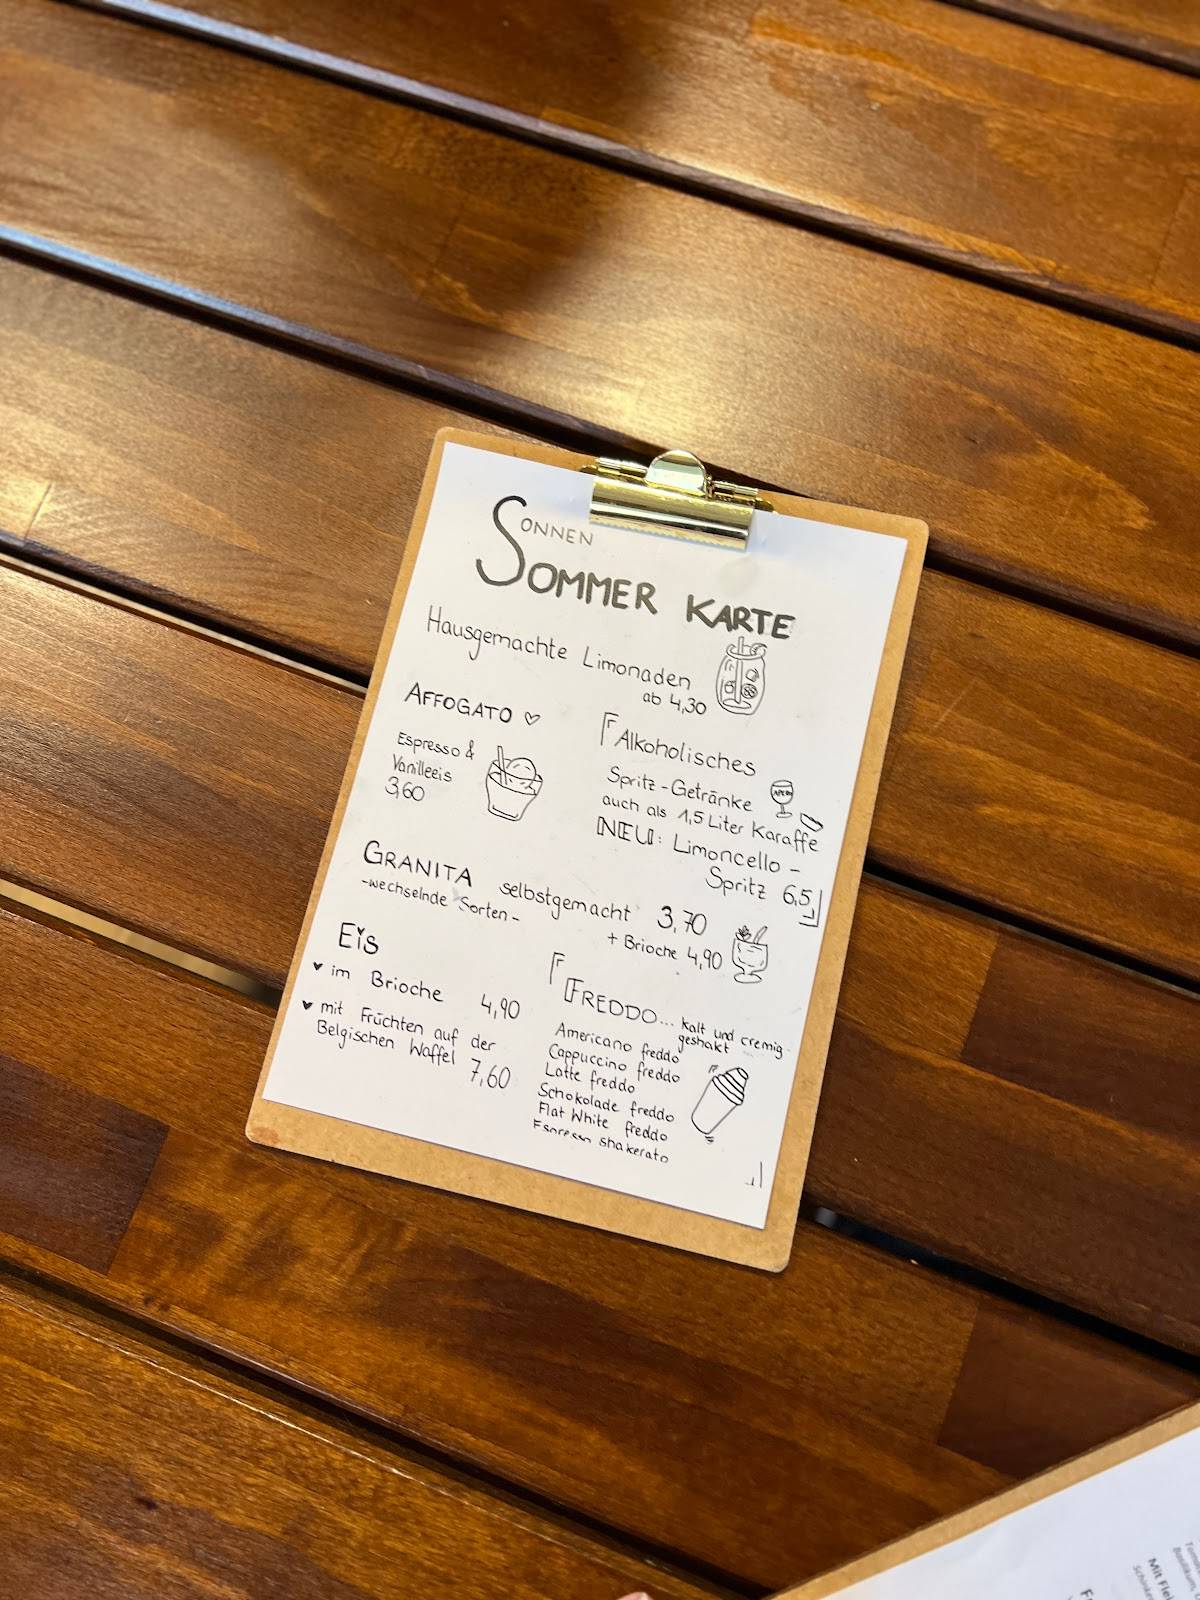 SONNEN
SOMMER KARTE
Hausgemachte Limonaden
ab 4,30
AFFOGATO
Espresso &
Vanilleeis
3,60
Alkoholisches
Spritz-Getränke
auch als 1,5 Liter Karaffe
NEU: Limoncello -
Spritz 6,5
APEROL
GRANITA selbstgemacht 3,70
-wechselnde Sorten-
+ Brioche 4,90
Eis
im Brioche 4,90
mit Früchten auf der
Belgischen Waffel
7,60
FREDDO... kalt und cremig
geshakt
Americano freddo
Cappuccino freddo
Latte freddo
Schokolade freddo
Flat White freddo
Espresso shakerato
Mit Flei